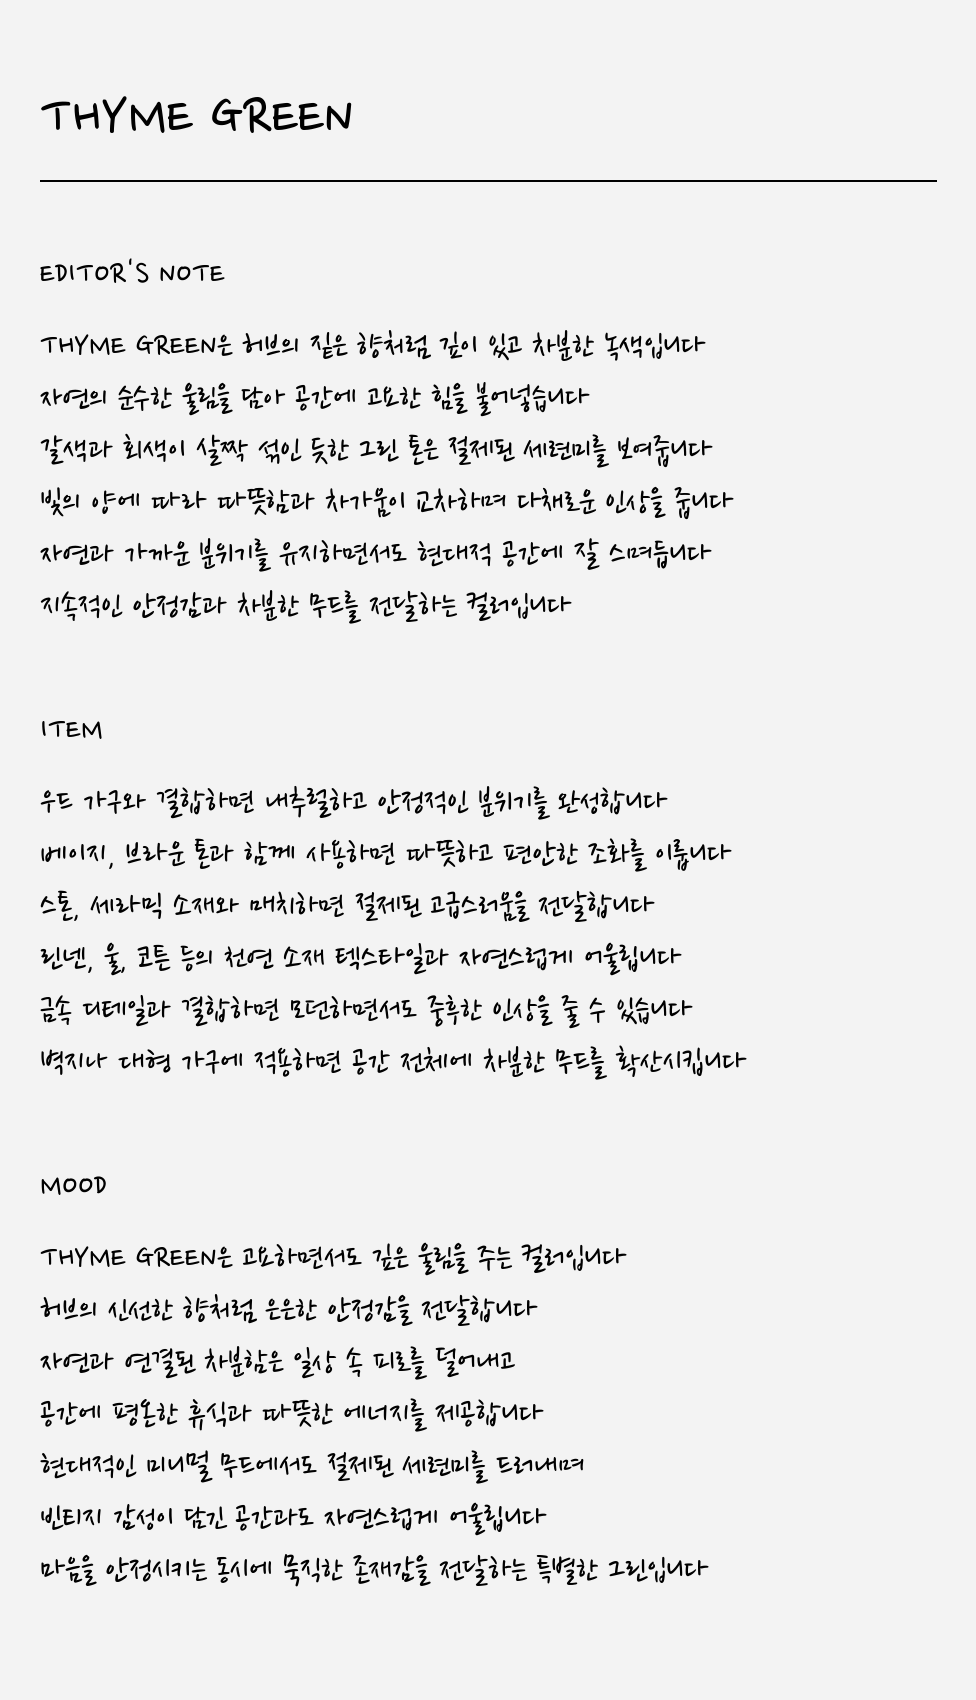 THYME GREEN
EDITOR'S NOTE
THYME GREEN은 허브의 짙은 향처럼 깊이 있고 차분한 녹색입니다
자연의 순수한 울림을 담아 공간에 고요한 힘을 불어넣습니다
갈색과 회색이 살짝 섞인 듯한 그린 톤은 절제된 세련미를 보여줍니다
빛의 양에 따라 따뜻함과 차가움이 교차하며 다채로운 인상을 줍니다
자연과 가까운 분위기를 유지하면서도 현대적 공간에 잘 스며듭니다
지속적인 안정감과 차분한 무드를 전달하는 컬러입니다
ITEM
우드 가구와 결합하면 내추럴하고 안정적인 분위기를 완성합니다
베이지, 브라운 톤과 함께 사용하면 따뜻하고 편안한 조화를 이룹니다
스톤, 세라믹 소재와 매치하면 절제된 고급스러움을 전달합니다
린넨, 울, 코튼 등의 천연 소재 텍스타일과 자연스럽게 어울립니다
금속 디테일과 결합하면 모던하면서도 중후한 인상을 줄 수 있습니다
벽지나 대형 가구에 적용하면 공간 전체에 차분한 무드를 확산시킵니다
MOOD
THYME GREEN은 고요하면서도 깊은 울림을 주는 컬러입니다
허브의 신선한 향처럼 은은한 안정감을 전달합니다
자연과 연결된 차분함은 일상 속 피로를 덜어내고
공간에 평온한 휴식과 따뜻한 에너지를 제공합니다
현대적인 미니멀 무드에서도 절제된 세련미를 드러내며
빈티지 감성이 담긴 공간과도 자연스럽게 어울립니다
마음을 안정시키는 동시에 묵직한 존재감을 전달하는 특별한 그린입니다